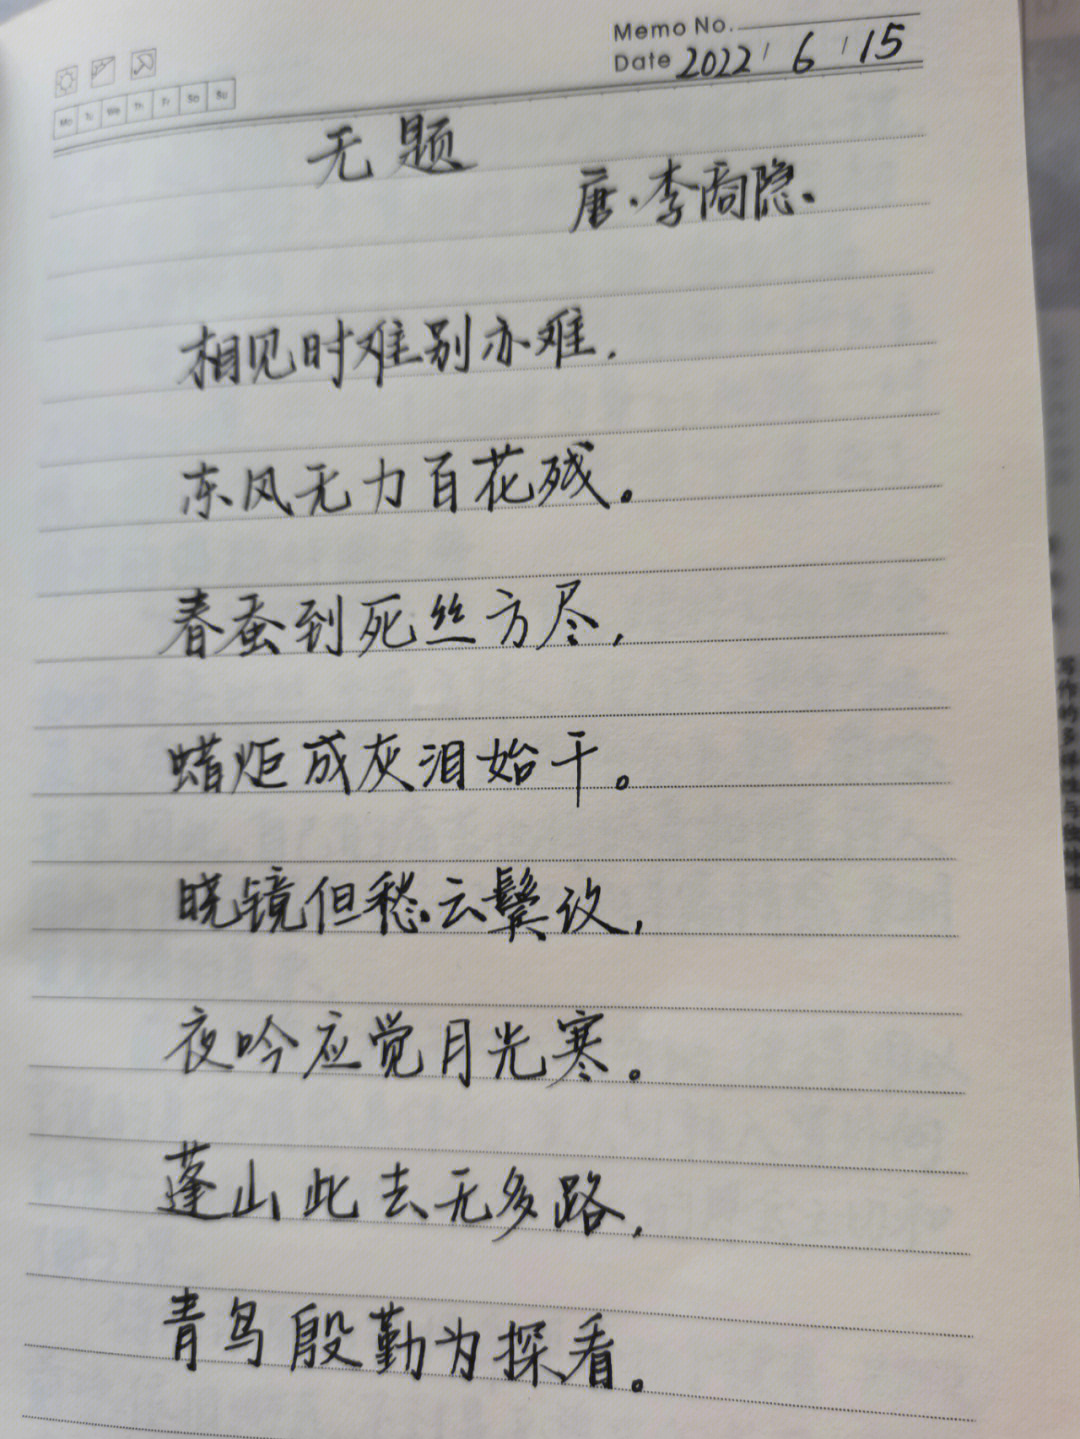 Memo No.
Date 2022 / 6 / 15
Mo Tu We Th Fr Sa Su
无题
唐·李商隐.
相见时难别亦难,
东风无力百花残。
春蚕到死丝方尽,
蜡炬成灰泪始干。
晓镜但愁云鬓改,
夜吟应觉月光寒。
蓬山此去无多路,
青鸟殷勤为探看。
写作的多样性与独特性